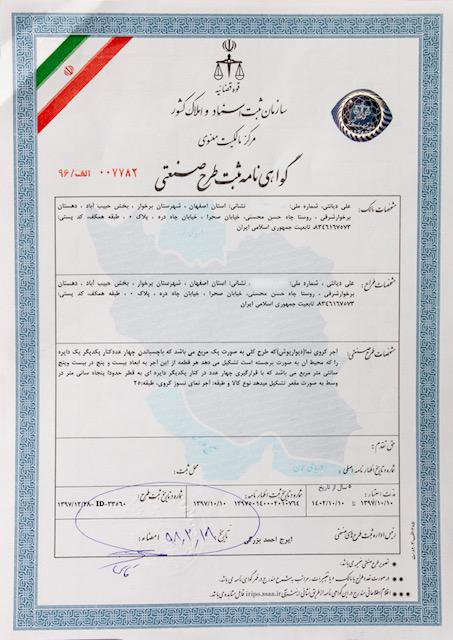 قوه قضائیه
سازمان ثبت اسناد و املاک کشور
مرکز مالکیت معنوی
گواهی نامه ثبت طرح صنعتی
۰۰۷۷۸۲ الف/۹۶
مشخصات مالک:
علی دیانتی، شماره ملی: نشانی: استان اصفهان ، شهرستان برخوار، بخش حبیب آباد ، دهستان
برخوارشرقی ، روستا چاه حسن محسنی، خیابان صحرا ، خیابان چاه دره ، پلاک ۰ ، طبقه همکف، کد پستی:
۸۳۴۶۱۶۷۵۷۳ تابعیت جمهوری اسلامی ایران
مشخصات طراح:
علی دیانتی ، شماره ملی: نشانی: استان اصفهان ، شهرستان برخوار ، بخش حبیب آباد ، دهستان
برخوارشرقی، روستا چاه حسن محسنی، خیابان صحرا ، خیابان چاه دره ، پلاک ۰ ، طبقه همکف، کد پستی:
۸۳۴۶۱۶۷۵۷۳، تابعیت جمهوری اسلامی ایران
مشخصات طرح صنعتی:
آجر کروی نما(دیوارپوش)که طرح کلی به صورت یک مربع می باشد که باچسباندن چهار عددکنار یکدیگر یک دایره
را که محیط آن به صورت برجسته است تشکیل می دهد هر قطعه از این آجر به ابعاد بیست و پنج در بیست وپنج
سانتی متر مربع می باشد که با قرارگیری چهار عدد در کنار یکدیگر دایره ای به قطر حدودا پنجاه سانتی متر در
وسط به صورت مقعر تشکیل میدهد نوع کالا و طبقه: آجر نمای نسوز کروی، طبقه:۲۵
حق تقدم:
شماره و تاریخ اظهارنامه اصلی:
محل ثبت:
مدت اعتبار: ۵ سال از تاریخ
۱۳۹۷/۱۰/۱۰ تا ۱۴۰۲/۱۰/۱۰
شماره و تاریخ ثبت اظهارنامه:
۱۳۹۷۵۰۱۴۰۰۰۲۰۲۰۷۶۴ ۱۳۹۷/۱۰/۱۰
شماره و تاریخ ثبت طرح:
ID-۳۳۵۶۰ ۱۳۹۷/۱۲/۲۸
رئیس اداره ثبت طرح های صنعتی
ایرج احمد بزرگی
تاریخ و امضاء:
تصویر طرح صنعتی ضمیمه می باشد.